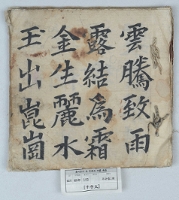 雲騰致雨
露結為霜
金生麗水
玉出崑崗